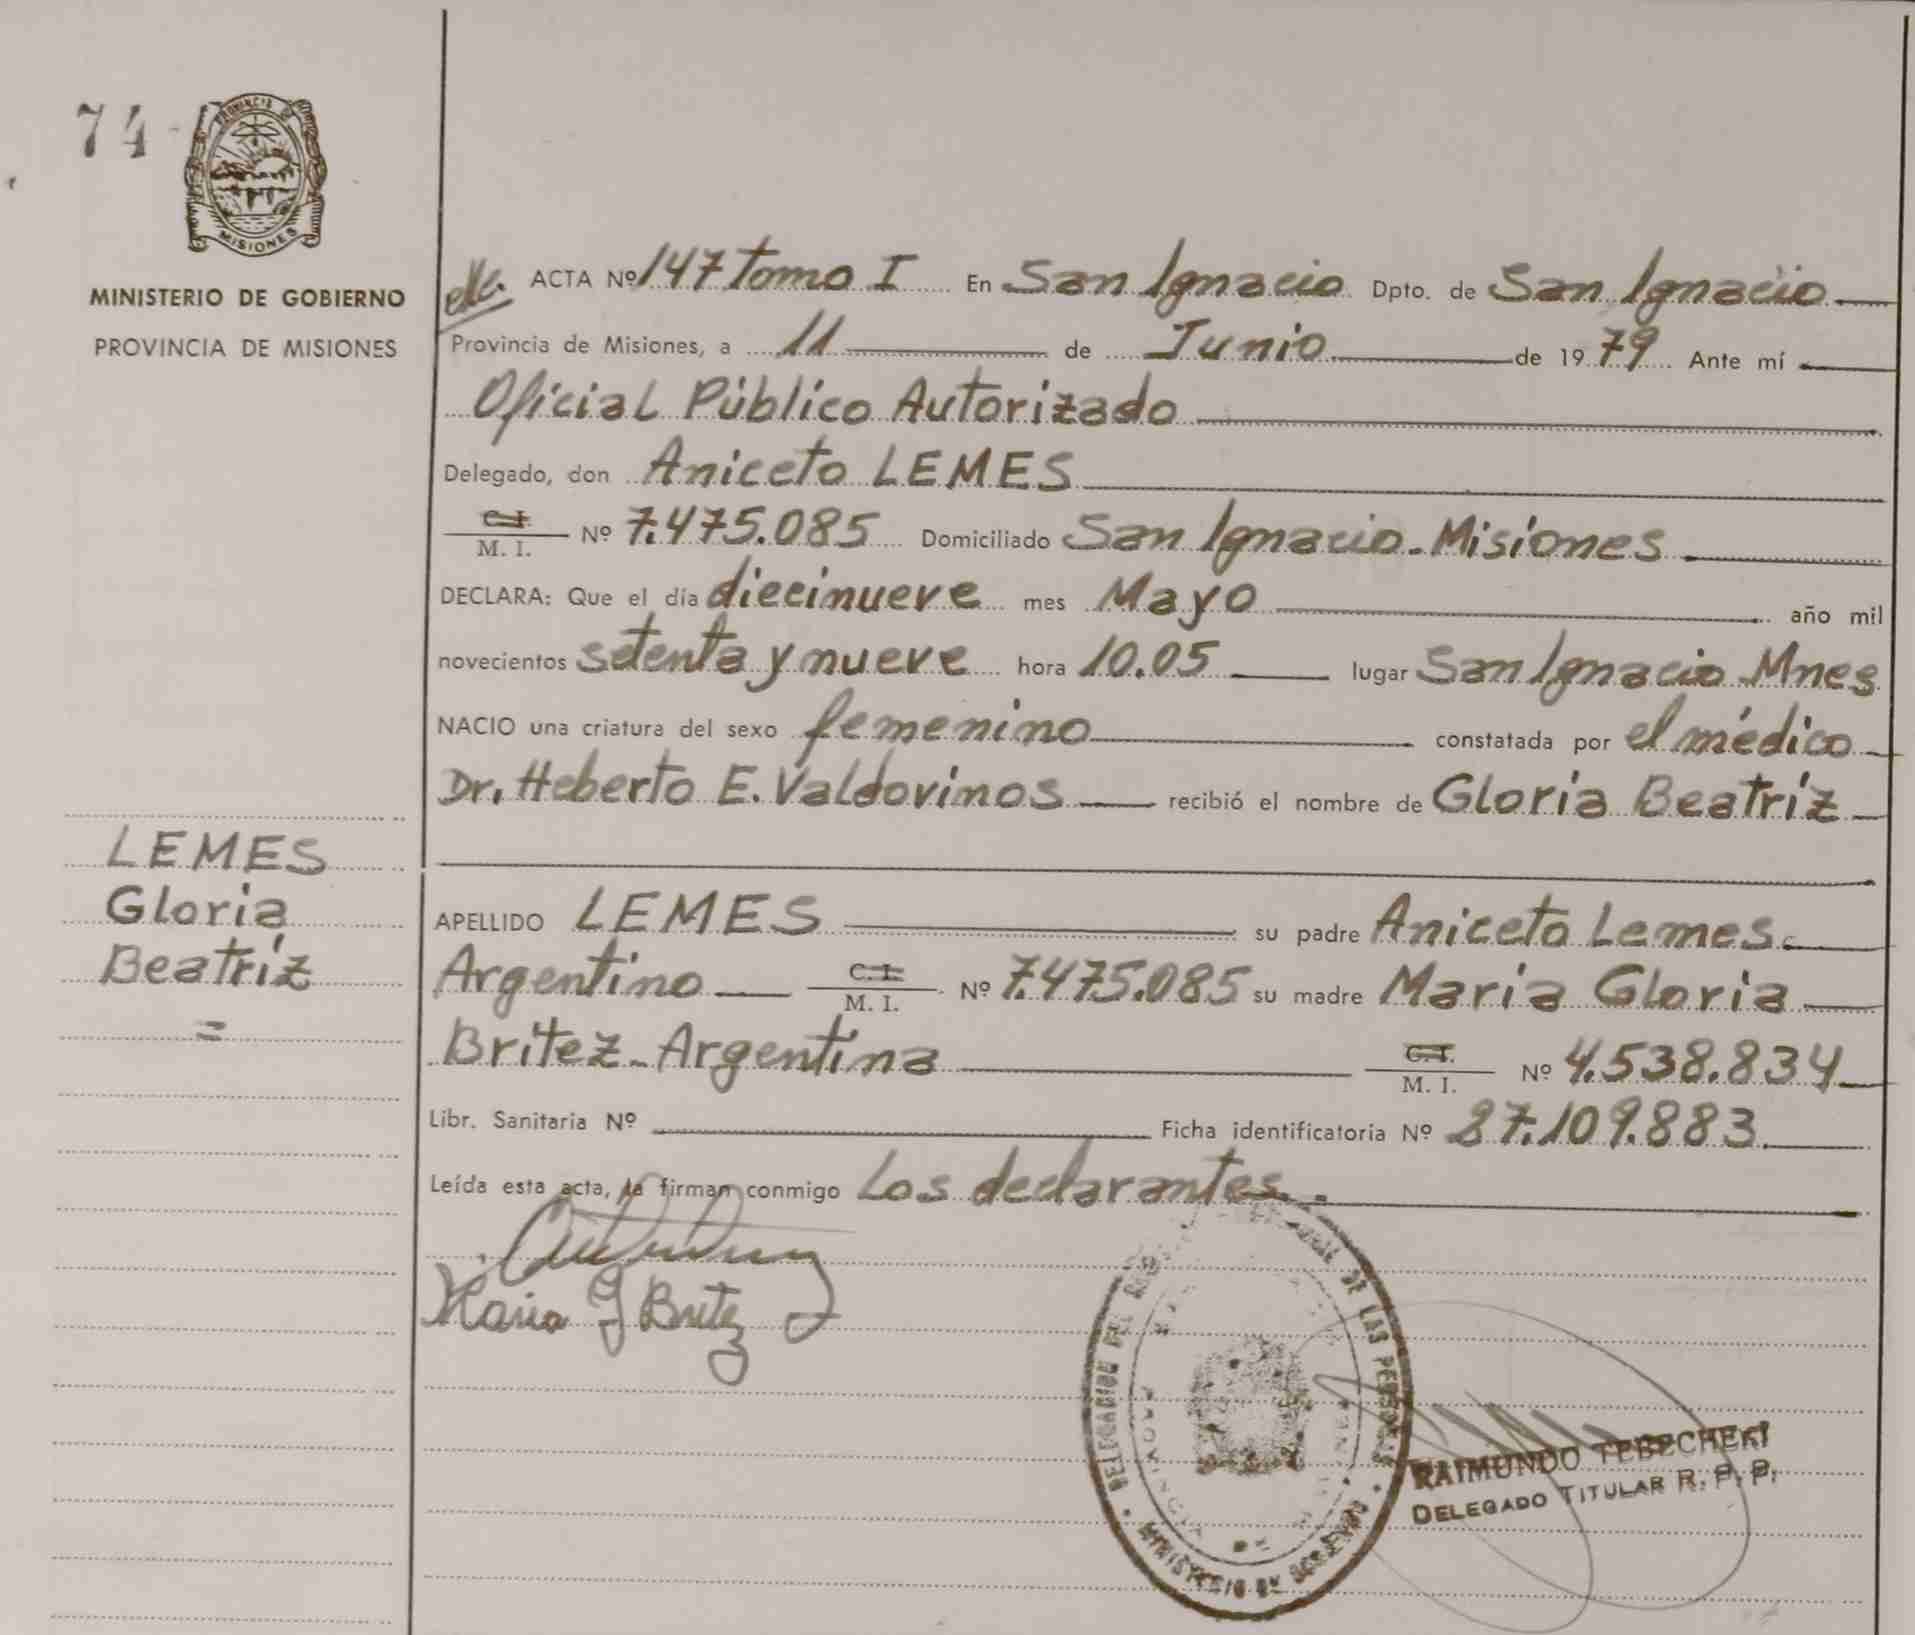 74
PROVINCIA DE
MISIONES
MINISTERIO DE GOBIERNO
PROVINCIA DE MISIONES
LEMES
Gloria
Beatríz
=
ACTA Nº 147 Tomo I En San Ignacio Dpto. de San Ignacio
Provincia de Misiones, a 11 de Junio de 1979 Ante mí
Oficial Público Autorizado
Delegado, don Aniceto LEMES
C. I.
M. I. Nº 7.475.085 Domiciliado San Ignacio - Misiones
DECLARA: Que el día diecinueve mes Mayo año mil
novecientos setenta y nueve hora 10.05 lugar San Ignacio Mnes
NACIO una criatura del sexo femenino constatada por el médico
Dr. Heberto E. Valdovinos recibió el nombre de Gloria Beatríz
APELLIDO LEMES su padre Aniceto Lemes
Argentino C. I.
M. I. Nº 7.475.085 su madre Maria Gloria
Britez - Argentina C. I.
M. I. Nº 4.538.834
Libr. Sanitaria Nº Ficha identificatoria Nº 27.109.883
Leída esta acta, la firman conmigo Los declarantes.
Maria G Britez
DELEGACION DEL DE LAS PERSONAS
MINISTERIO DE GOBIERNO
PROVINCIA DE MISIONES
RAIMUNDO TEBECHERI
DELEGADO TITULAR R. P. P.